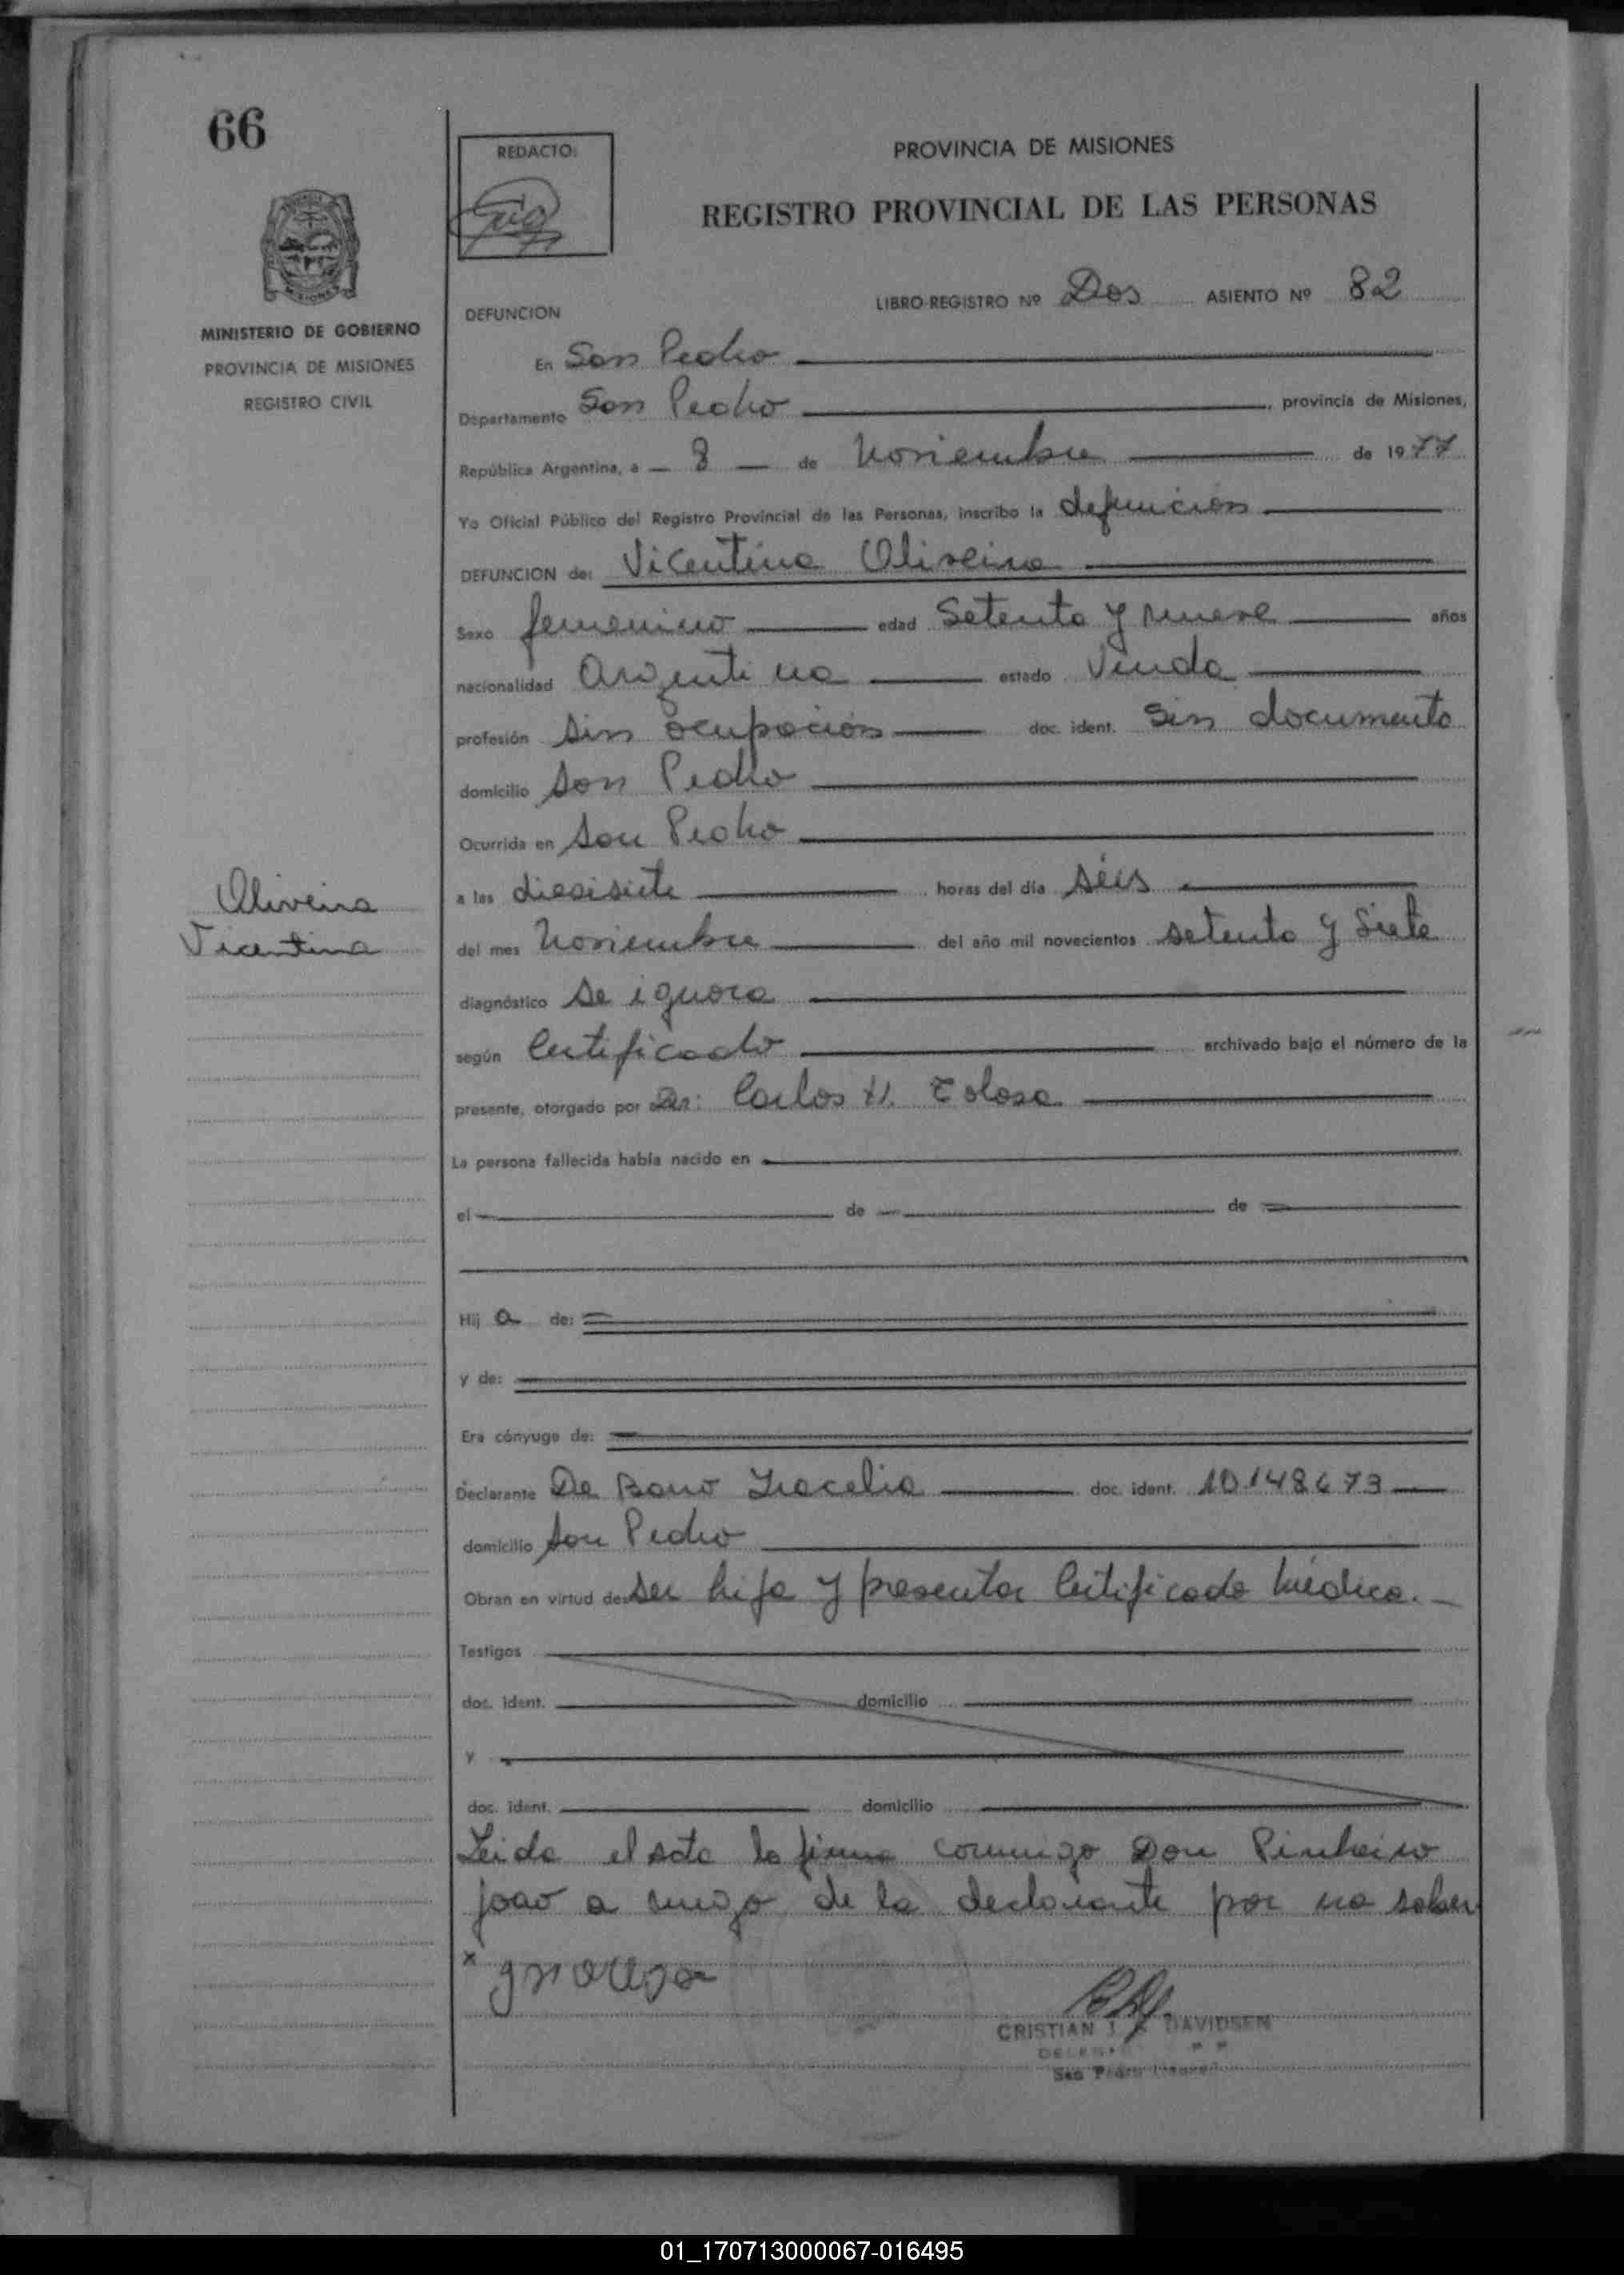 66
REDACTO:
PROVINCIA DE MISIONES
REGISTRO PROVINCIAL DE LAS PERSONAS
MINISTERIO DE GOBIERNO
PROVINCIA DE MISIONES
REGISTRO CIVIL
LIBRO-REGISTRO Nº Dos ASIENTO Nº 82
DEFUNCION
En San Pedro
Departamento San Pedro, provincia de Misiones,
República Argentina, a 8 de Noviembre de 1977
Yo Oficial Público del Registro Provincial de las Personas, inscribo la defunción
DEFUNCION de: Vicentina Oliveira
Sexo femenino edad Setenta y nueve años
nacionalidad Argentina estado Viuda
profesión sin ocupación doc. ident. Sin documento
domicilio San Pedro
Ocurrida en San Pedro
Oliveira
Vicentina
a las diecisiete horas del día séis
del mes Noviembre del año mil novecientos setenta y Siete
diagnóstico se ignora
según Certificado archivado bajo el número de la
presente, otorgado por Dr: Carlos H. Tolosa
La persona fallecida había nacido en
el de de
Hij a de:
y de:
Era cónyuge de:
Declarante De Bairro Iracelia doc. ident. 10.148.673
domicilio San Pedro
Obran en virtud de: ser hija y presentar Certificado Médico. -
Testigos
doc. ident. domicilio
y
doc. ident. domicilio
Leida el acta la firma conmigo Don Pinheiro
joao a ruego de la declarante por no saber
x
CRISTIAN J. DAVIDSEN
San Pedro
01_170713000067-016495